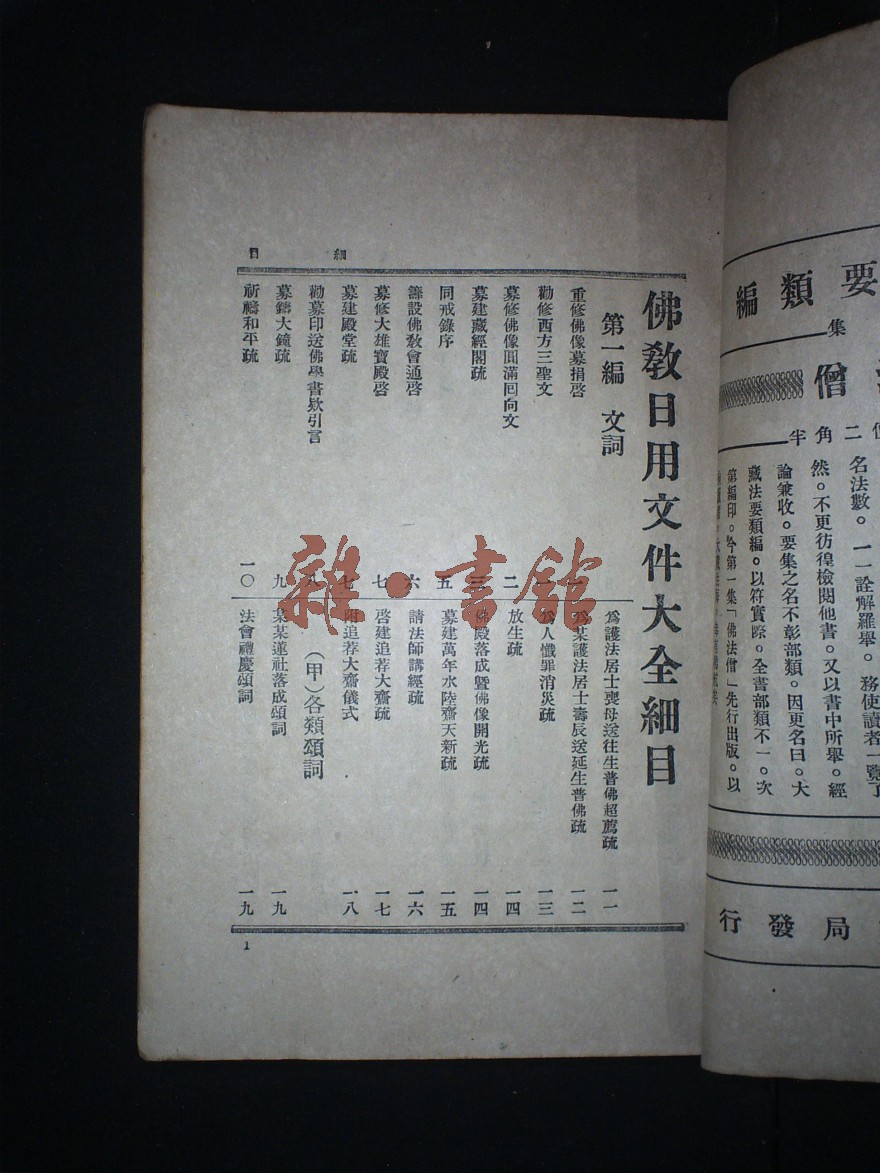 要類編
集
僧
二角半
名法數。一一詮解羅舉。務使讀者一覽了
然。不更彷徨檢閱他書。又以書中所舉。經
論兼收。要集之名不彰部類。因更名曰。大
藏法要類編。以符實際。全書部類不一。次
第編印。今第一集「佛法僧」先行出版。以
局發行
細目
佛教日用文件大全細目
第一編 文詞
重修佛像募捐啓 一
勸修西方三聖文 一
募修佛像圓滿回向文 二
募建藏經閣疏 三
同戒錄序 五
籌設佛教會通啓 六
募修大雄寶殿啓 七
募建殿堂疏 七
勸募印送佛學書欵引言 八
募鑄大鐘疏 九
祈禱和平疏 一〇
爲護法居士喪母送往生普佛超薦疏 一一
爲某護法居士壽辰送延生普佛疏 一二
爲人懺罪消災疏 一三
放生疏 一四
佛殿落成暨佛像開光疏 一四
募建萬年水陸齋天新疏 一五
請法師講經疏 一六
啓建追荐大齋疏 一七
附追荐大齋儀式 一八
(甲)各類頌詞
某某蓮社落成頌詞 一九
法會禮慶頌詞 一九
1
雜·書館